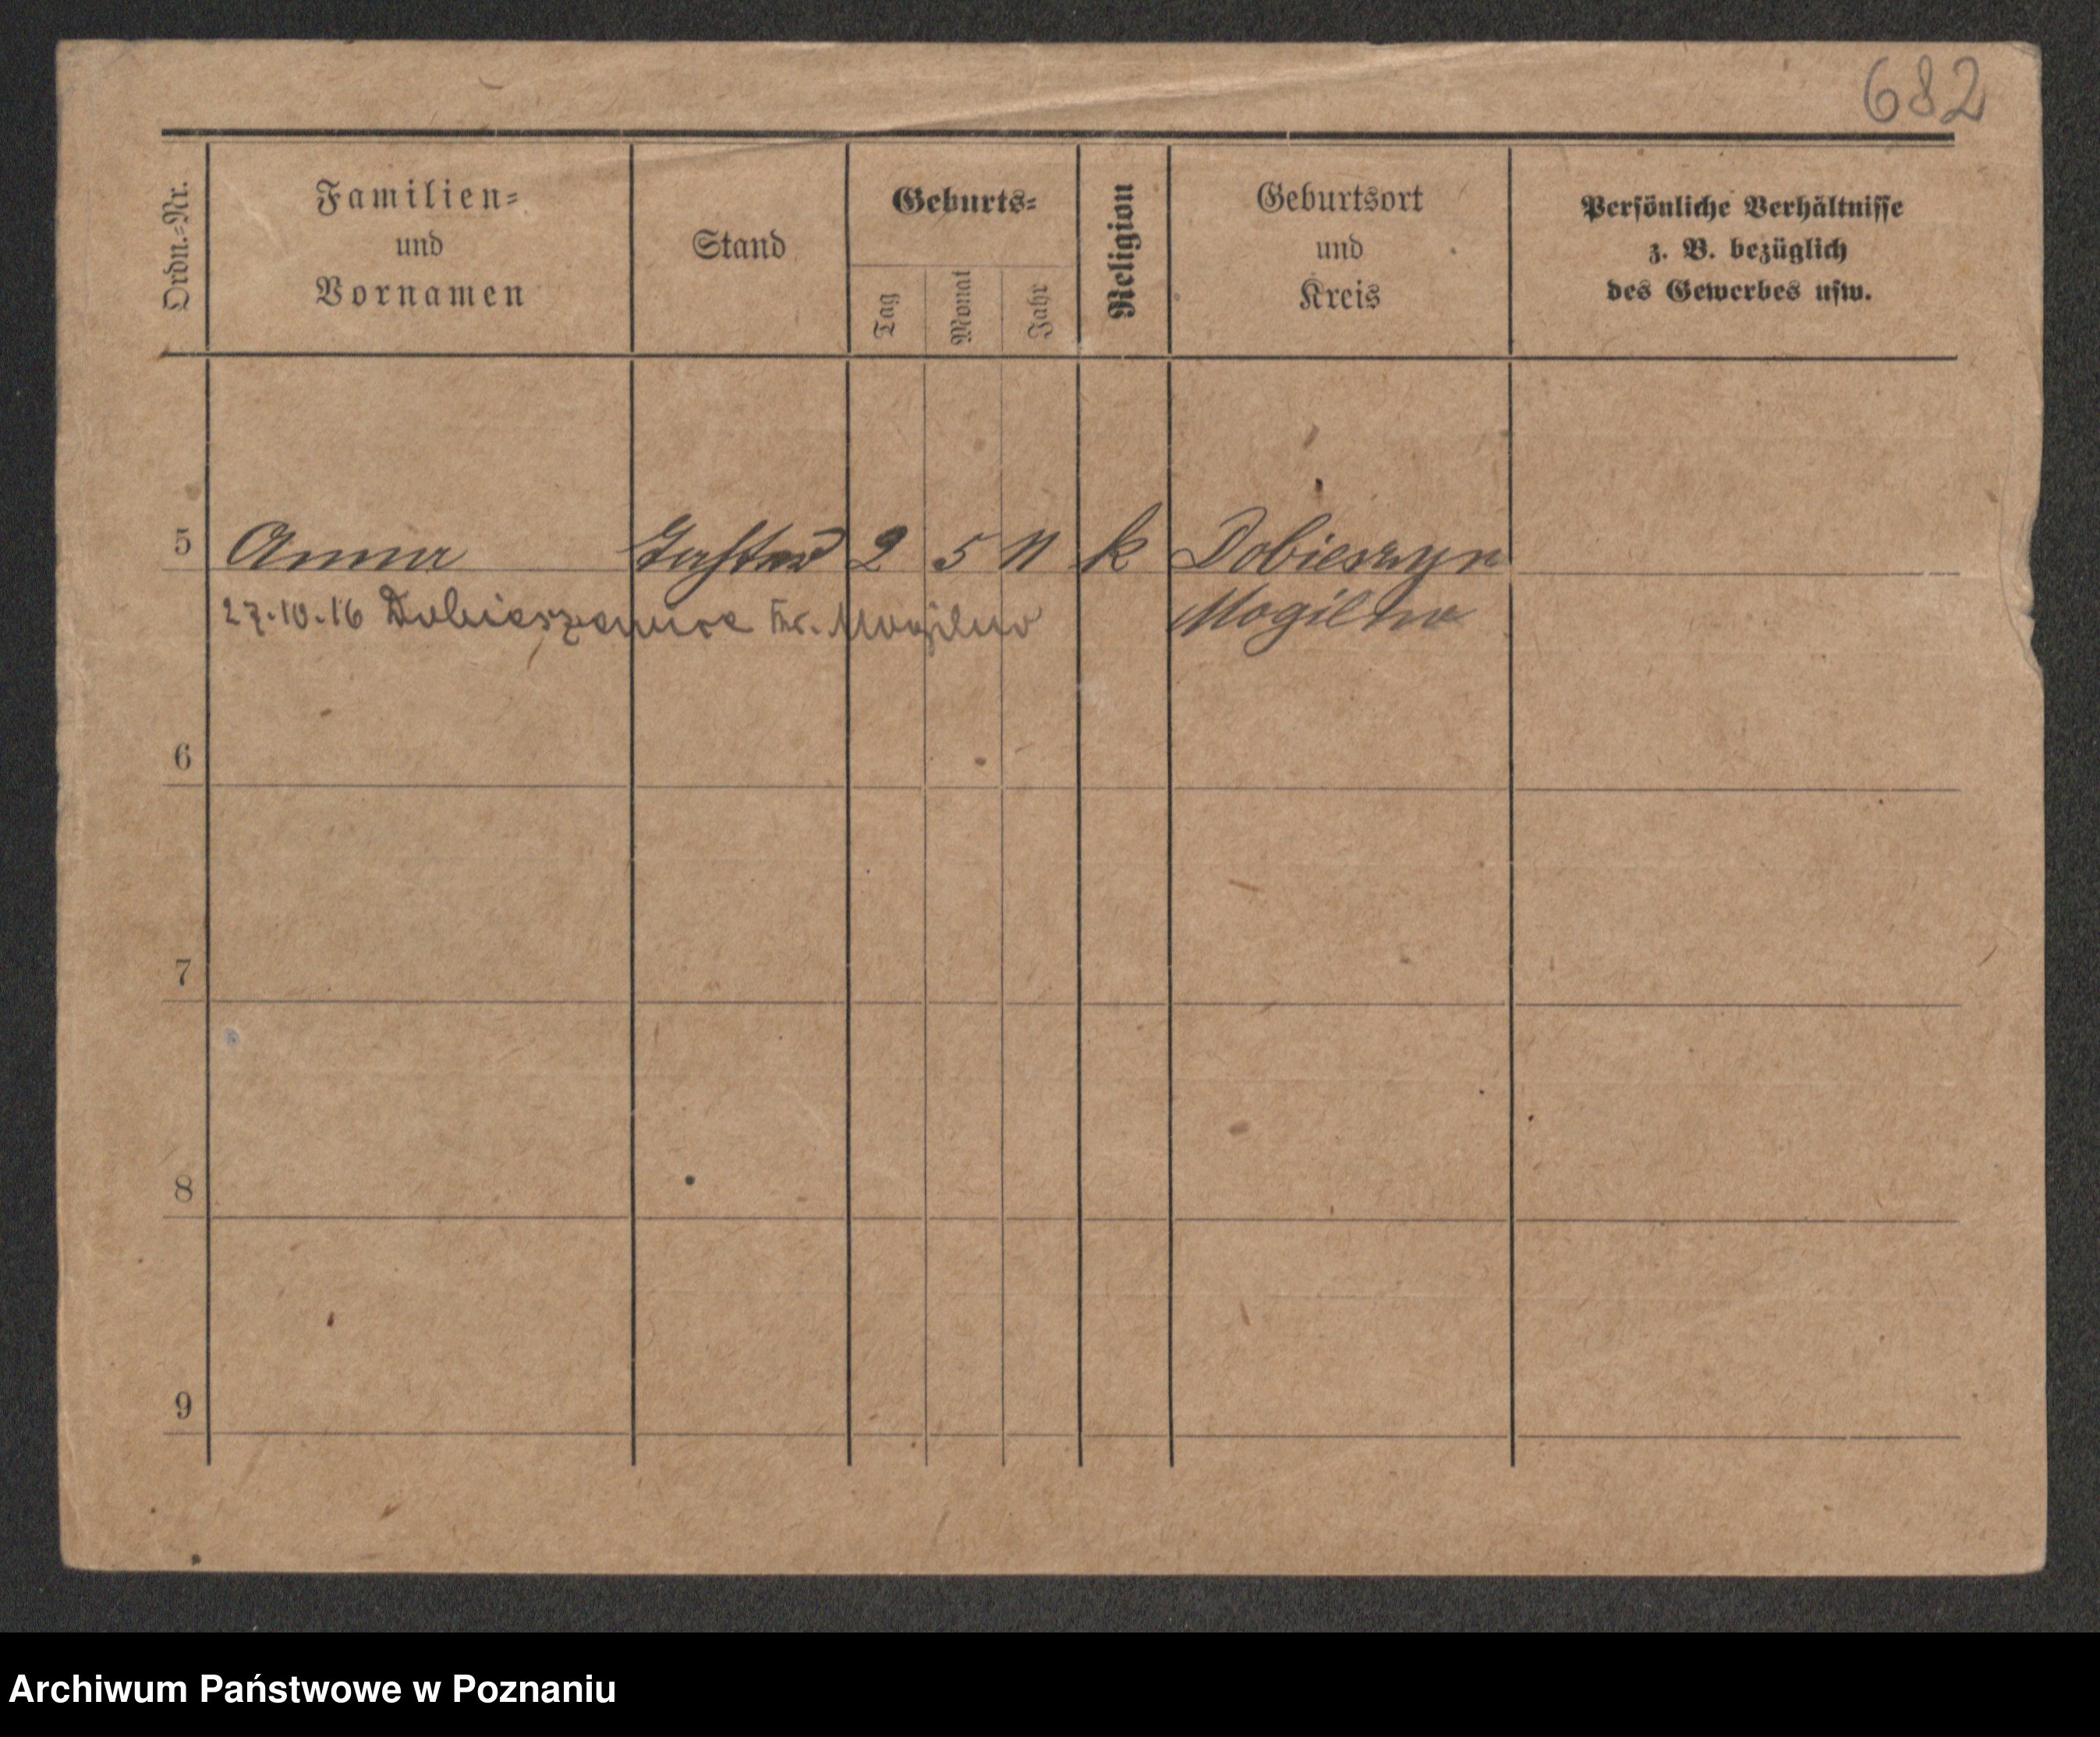 682
Ordn.=Nr.
Familien=
und
Vornamen
Stand
Geburts=
Tag
Monat
Jahr
Religion
Geburtsort
und
Kreis
Persönliche Verhältnisse
z. B. bezüglich
des Gewerbes usw.
5 Anna 2 5 11 k
Mogilno
27.10.16 Mogilno
6
7
8
9
Archiwum Państwowe w Poznaniu